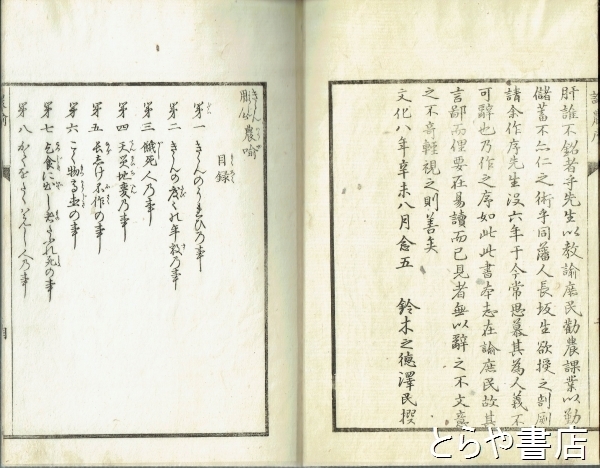 肝誰不銘者乎先生以教諭庶民勸農課業以勤
儲蓄不亦仁之術乎同藩人長坂生欲授之剞劂
請余作序先生沒六年于今常思慕其為人義不
可辭也乃作之序如此此書本志在諭庶民故其
言鄙而俚要在易讀而已見者無以辭之不文意
之不奇輕視之則善矣
文化八年辛未八月念五　鈴木之德澤民撰
農喩
目録
第一　きゝんのうれひの事
第二　きゝんの成され年数の事
第三　餓死人の事
第四　天災地変の事
第五　長しけ不作の事
第六
第七　乞食に出し者たふれ死の事
第八
とらや書店